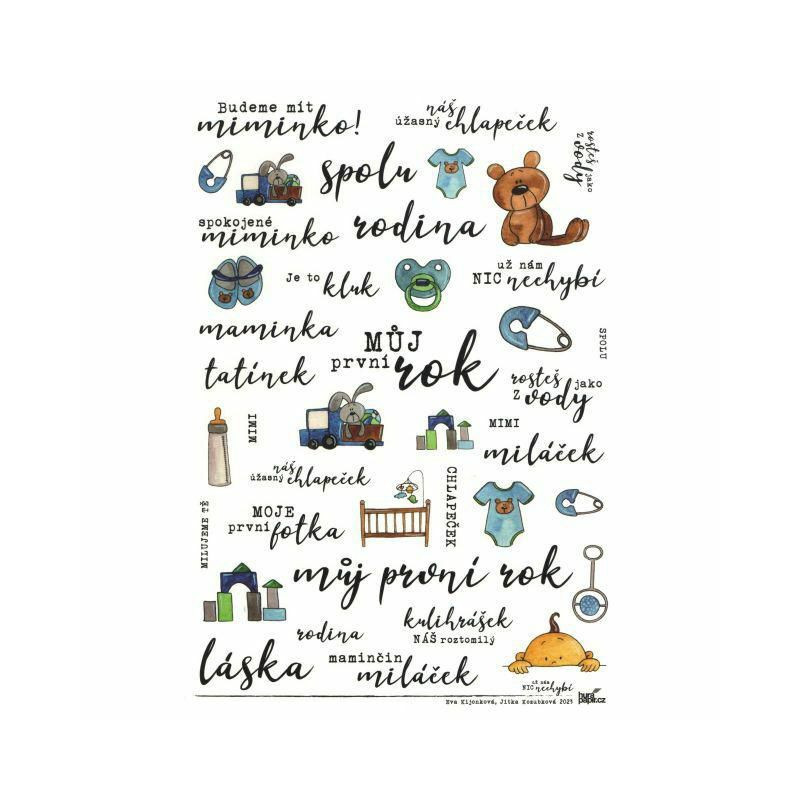 Budeme mít
miminko!
náš
úžasný chlapeček
rosteš jako
z vody
spolu
spokojené
miminko
rodina
Je to kluk
už nám
NIC nechybí
maminka
MŮJ
první rok
SPOLU
tatínek
rosteš jako
z vody
MIMI
MIMI
miláček
náš
úžasný chlapeček
CHLAPEČEK
MILUJEME TĚ
MOJE
první fotka
můj první rok
kulihrášek
NÁŠ roztomilý
rodina
láska
maminčin
miláček
už nám
NIC nechybí
Eva Kijonková, Jitka Kozubková 2023
hura
papir.cz